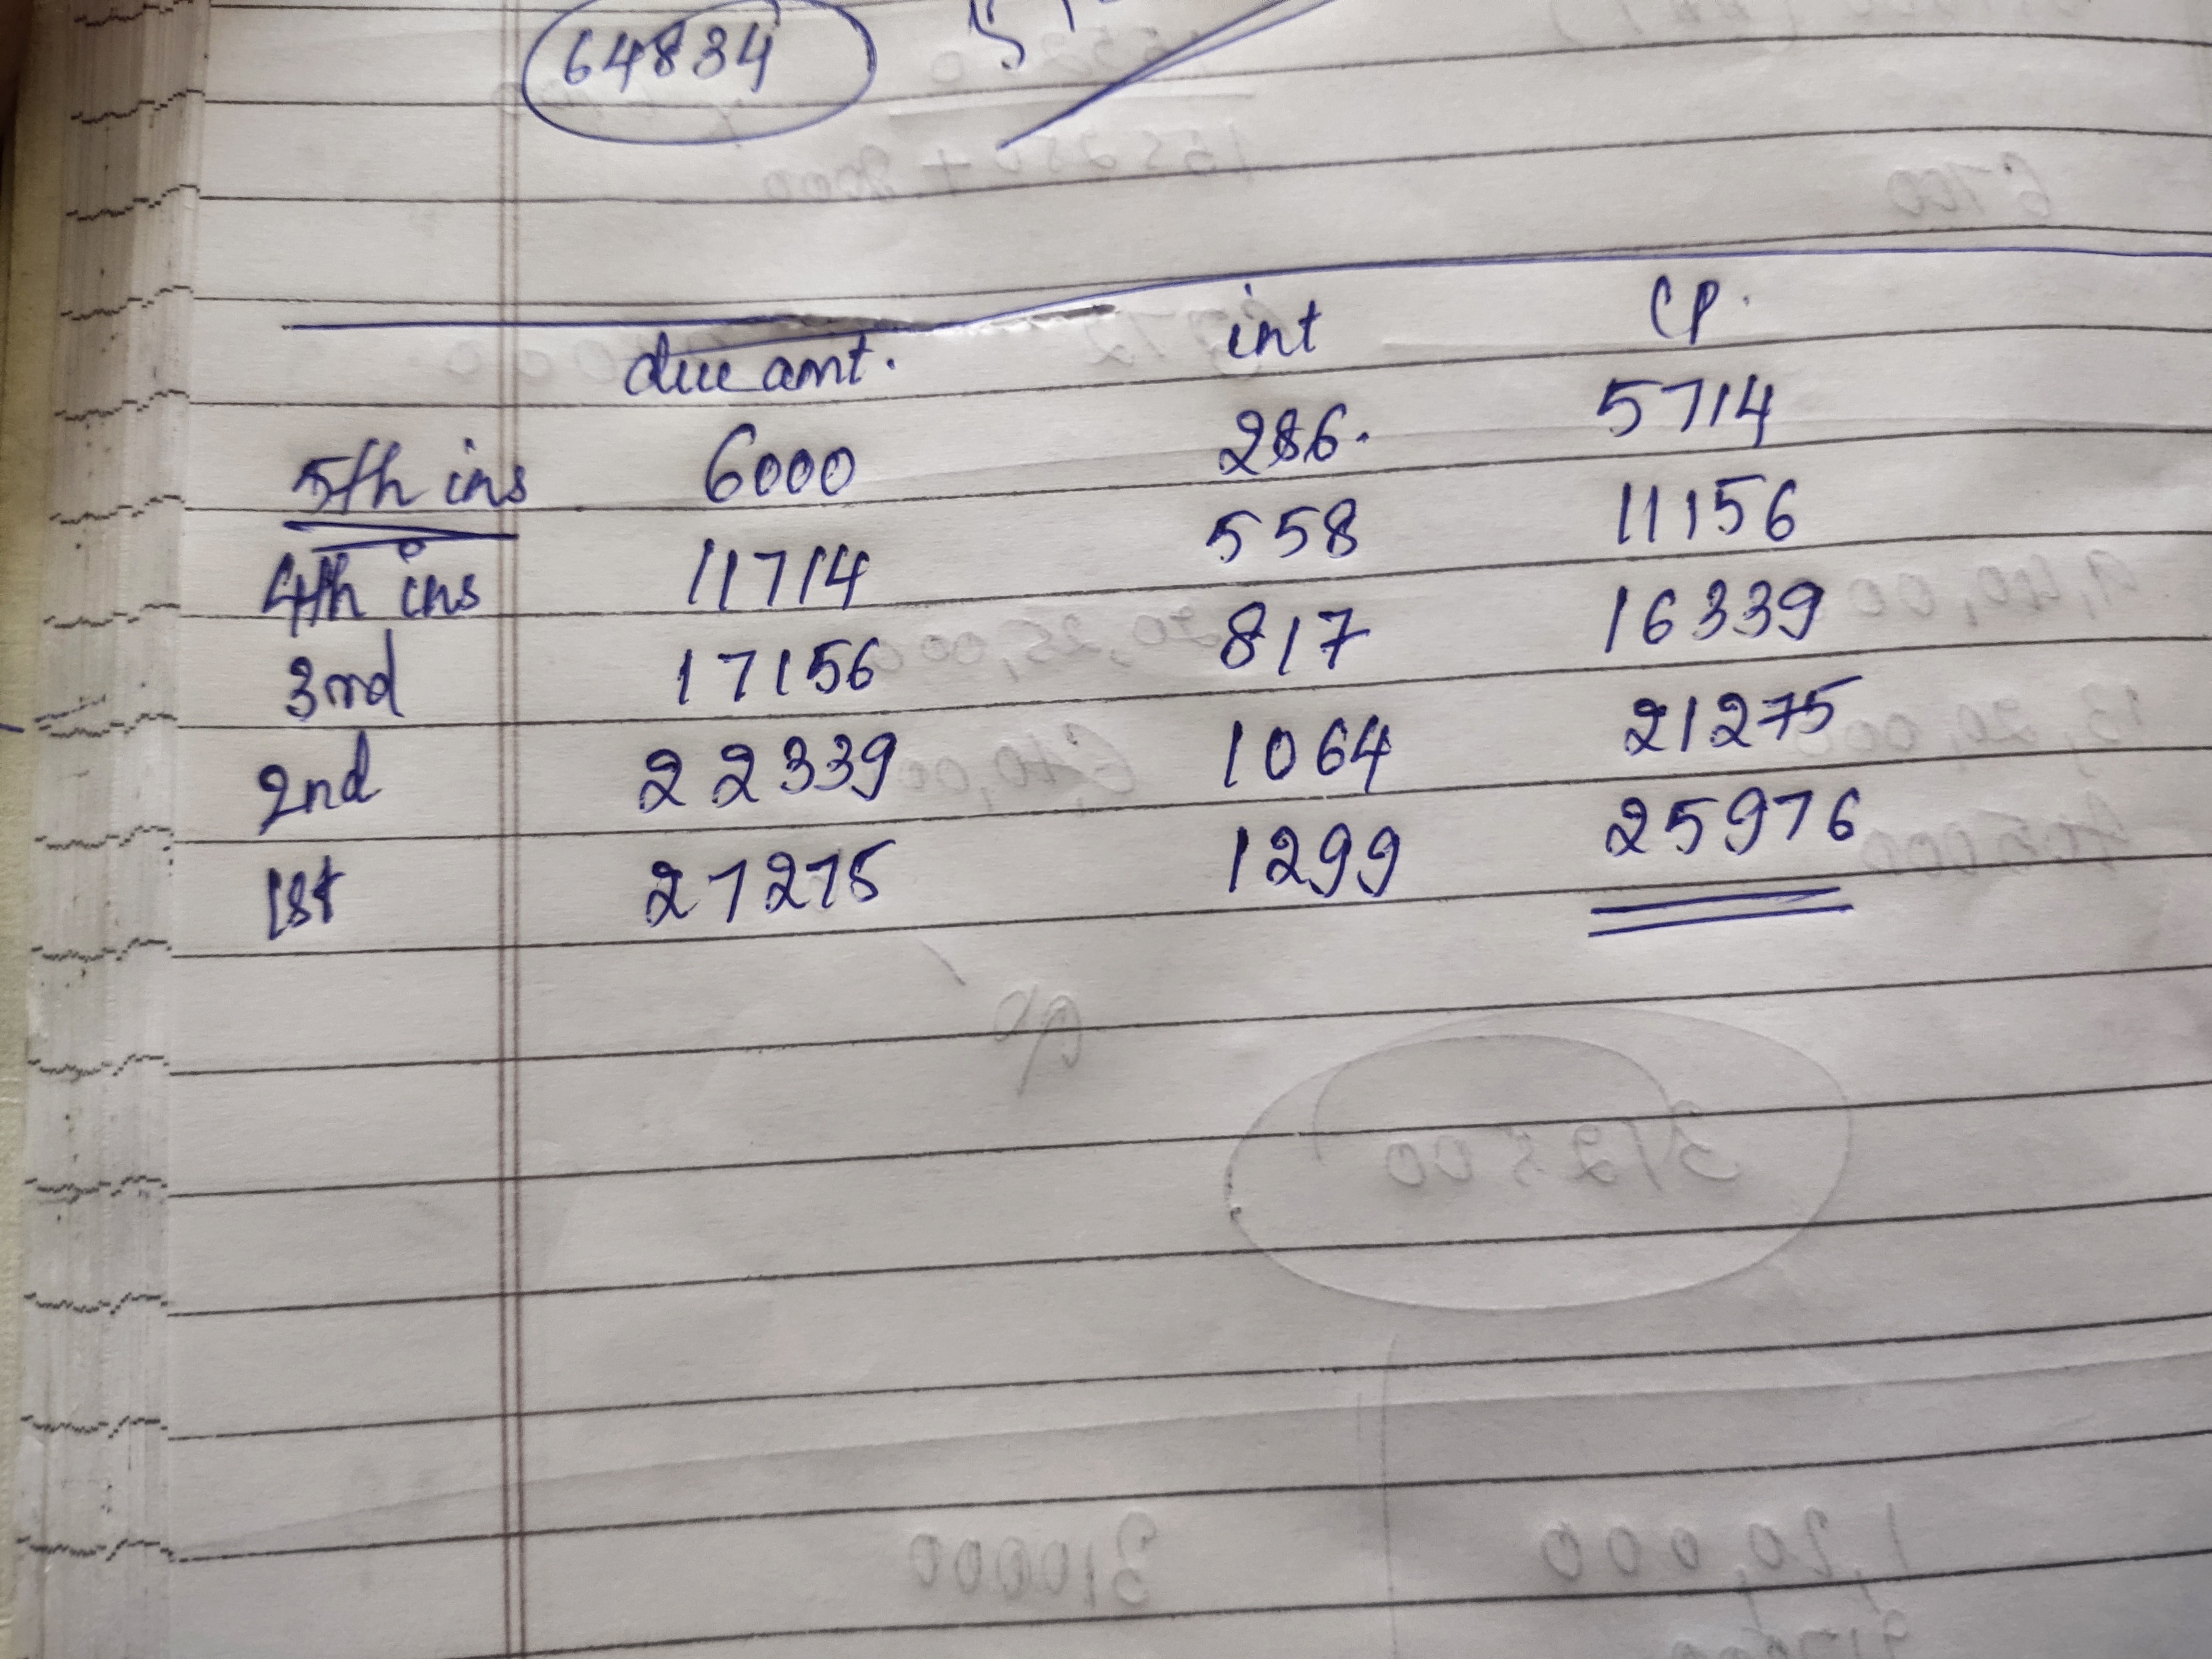 64834
due amt. int CP.
5th ins 6000 286. 5714
4th ins 11714 558 11156
3rd 17156 817 16339
2nd 22339 1064 21275
1st 27275 1299 25976